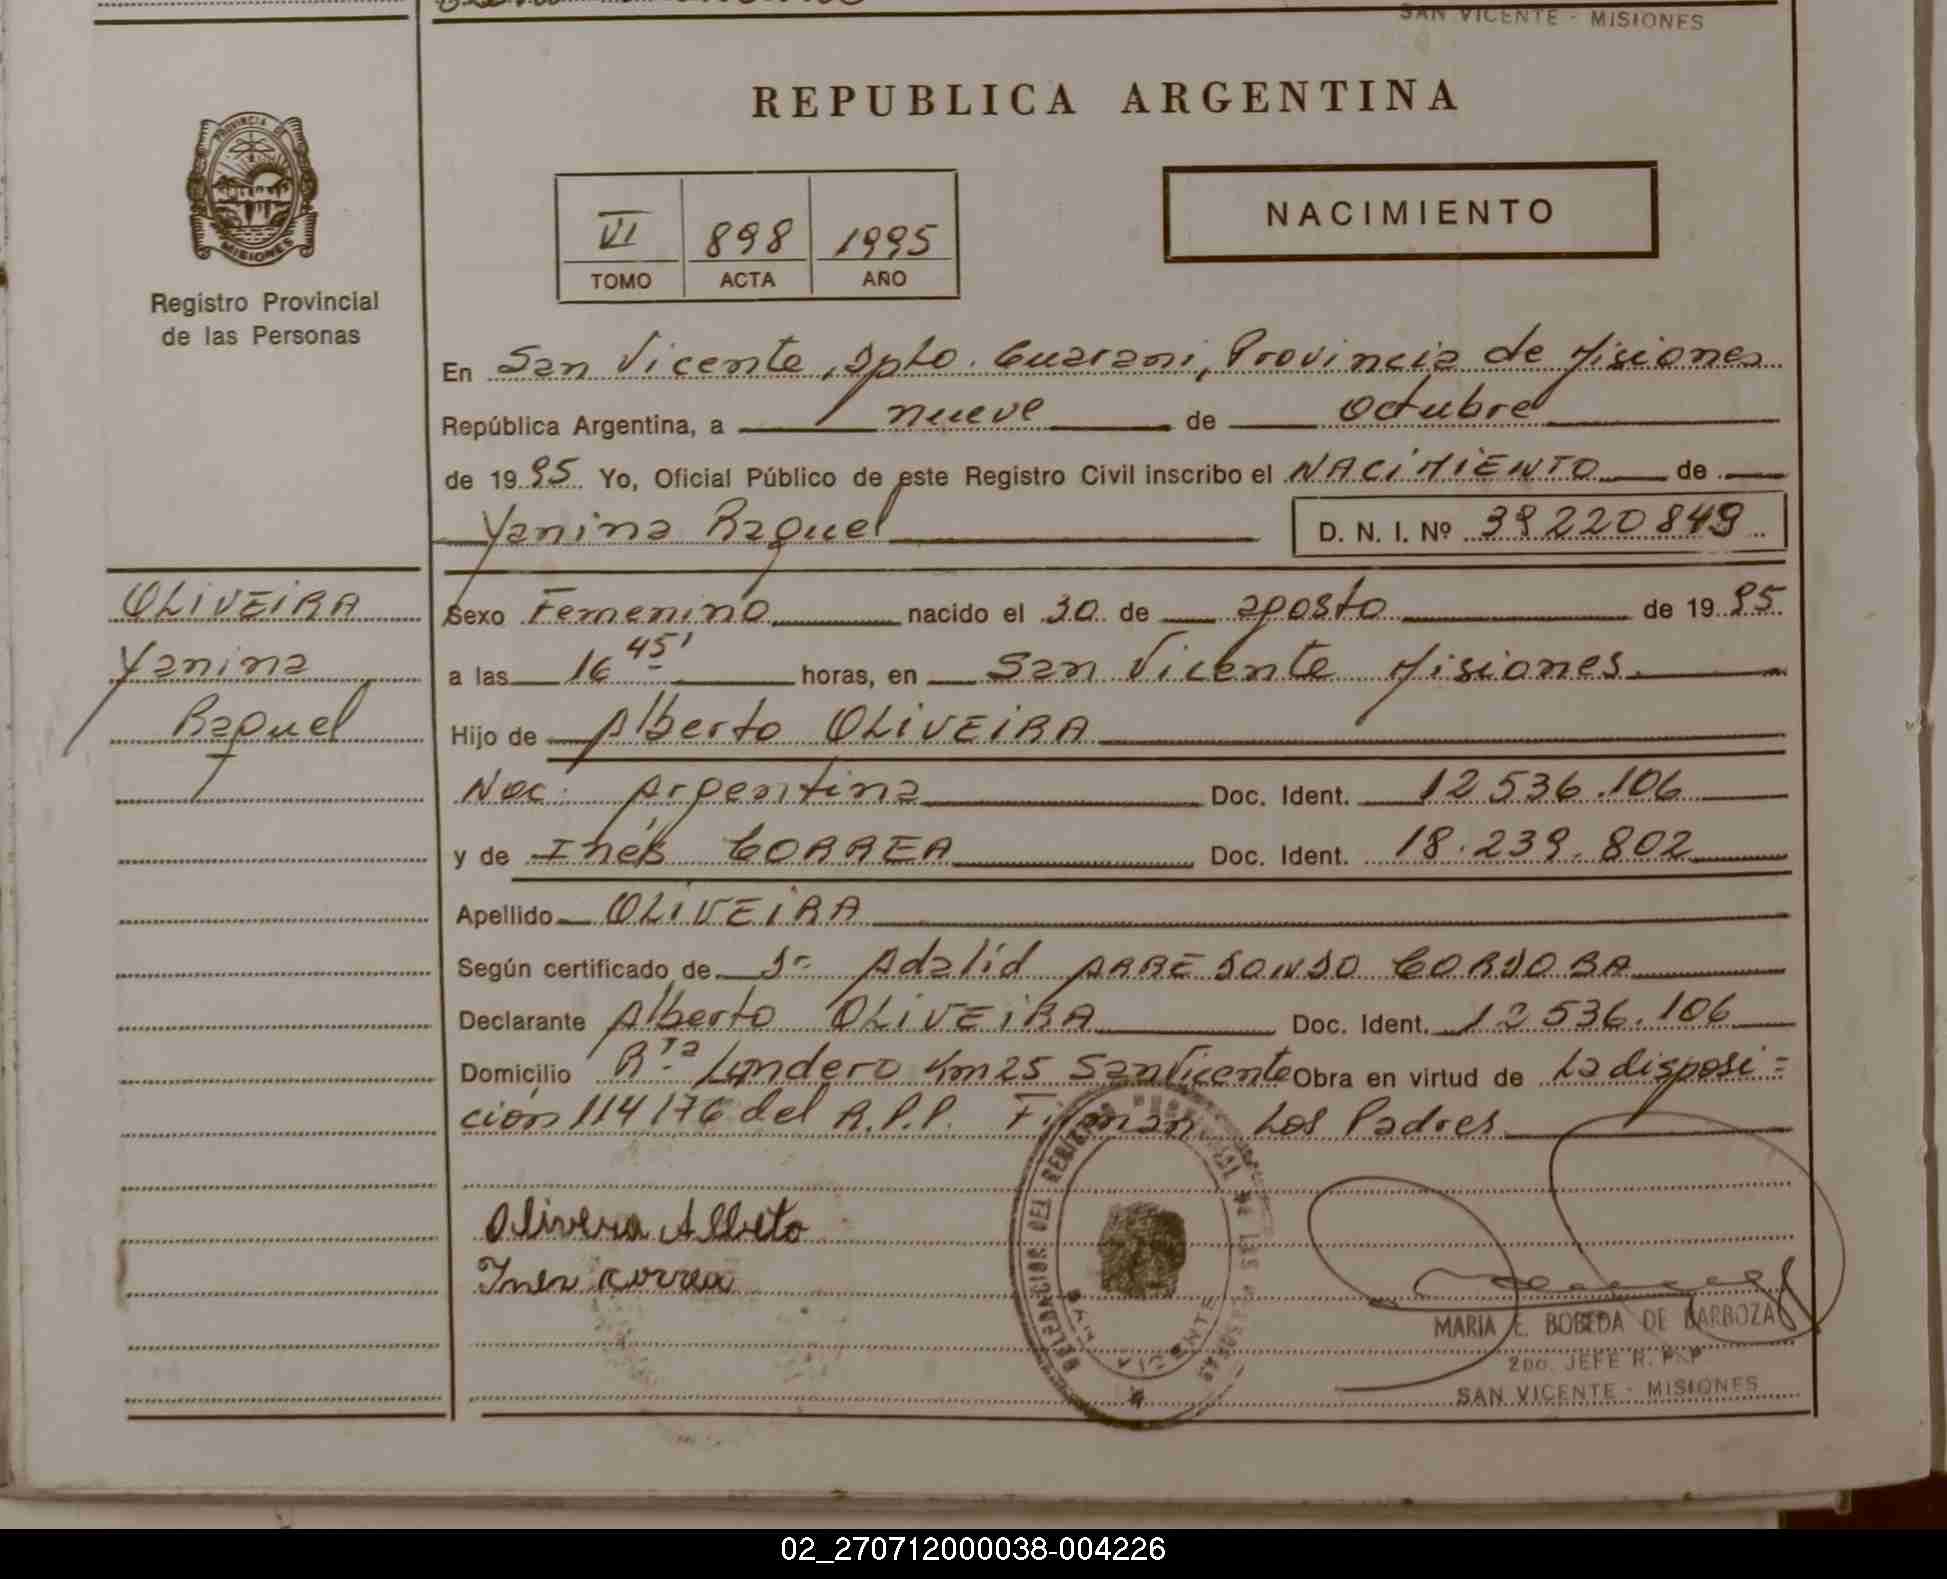 SAN VICENTE - MISIONES
REPUBLICA ARGENTINA
PROVINCIA DE
MISIONES
Registro Provincial
de las Personas
VI 898 1995
TOMO ACTA AÑO
NACIMIENTO
En San Vicente, Dpto. Guarani, Provincia de Misiones
República Argentina, a nueve de octubre
de 1995 Yo, Oficial Público de este Registro Civil inscribo el NACIMIENTO de
Yanina Raquel D. N. I. Nº 39220849
OLIVEIRA
Yanina
Raquel
Sexo Femenino nacido el 30 de agosto de 1995
a las 16 45' horas, en San Vicente Misiones
Hijo de Alberto OLIVEIRA
Nac: Argentina Doc. Ident. 12 536.106
y de Inés CORREA Doc. Ident. 18.239.802
Apellido OLIVEIRA
Según certificado de Dr Adalid ARREDONDO CORDOBA
Declarante Alberto OLIVEIRA Doc. Ident. 12 536.106
Domicilio Rta Londero Km 25 San Vicente Obra en virtud de La disposi=
ción 114/76 del R.P.P. Firman Los Padres
Olivera Alberto
Ines correa
DELEGACION DEL REGISTRO
MARIA E. BOBEDA DE BARBOZA
2DO. JEFE R. P. P
SAN VICENTE - MISIONES
02_270712000038-004226